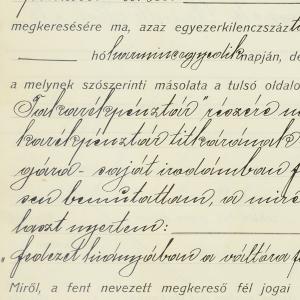 megkeresésére ma, azaz egyezerkilenczszáz
hó harmincegyedik napján, de
a melynek szószerinti másolata a tulsó oldalo
Takarékpénztár" részére
karékpénztár titkárának
gáră- saját irodámban f
sen bemutattam, a mire
laszt nyertem:
„fedezet hiányjában a váltóra f
Miről, a fent nevezett megkereső fél jogai